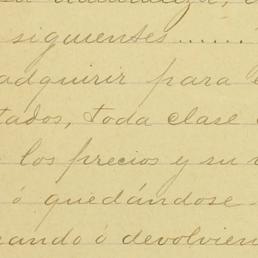 naturaleza,
siguientes.......
adquirir para
tados, toda clase
los precios y su
ó quedándose
ando ó devolvien